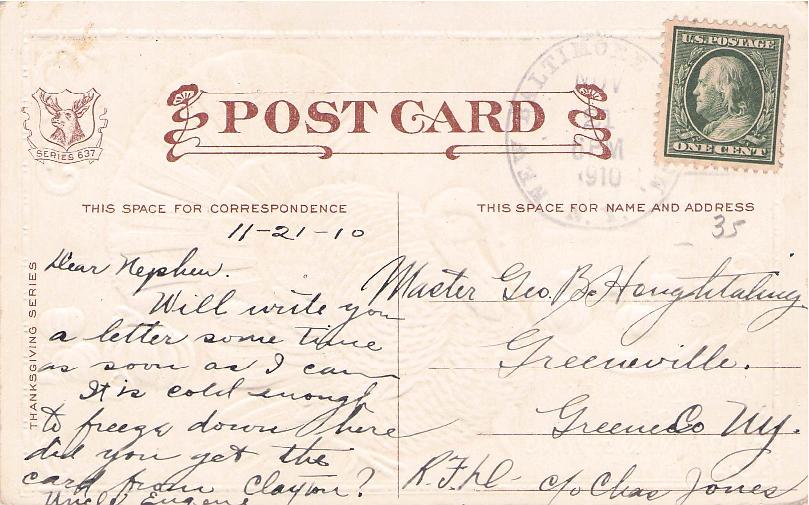 U.S. POSTAGE
ONE CENT
NEW BALTIMORE
NOV
21
6 PM
1910
N.Y.
SERIES 637
POST CARD
THIS SPACE FOR CORRESPONDENCE
THIS SPACE FOR NAME AND ADDRESS
35
THANKSGIVING SERIES
11-21-10
Dear Nephew.
Will write you
a letter some time
as soon as I can
It is cold enough
to freeze down here
did you get the
card from Clayton?
Uncle Eugene
Master Geo. B. Houghtaling
Greeneville.
Greene Co NY.
R.F.D. c/o Chas Jones